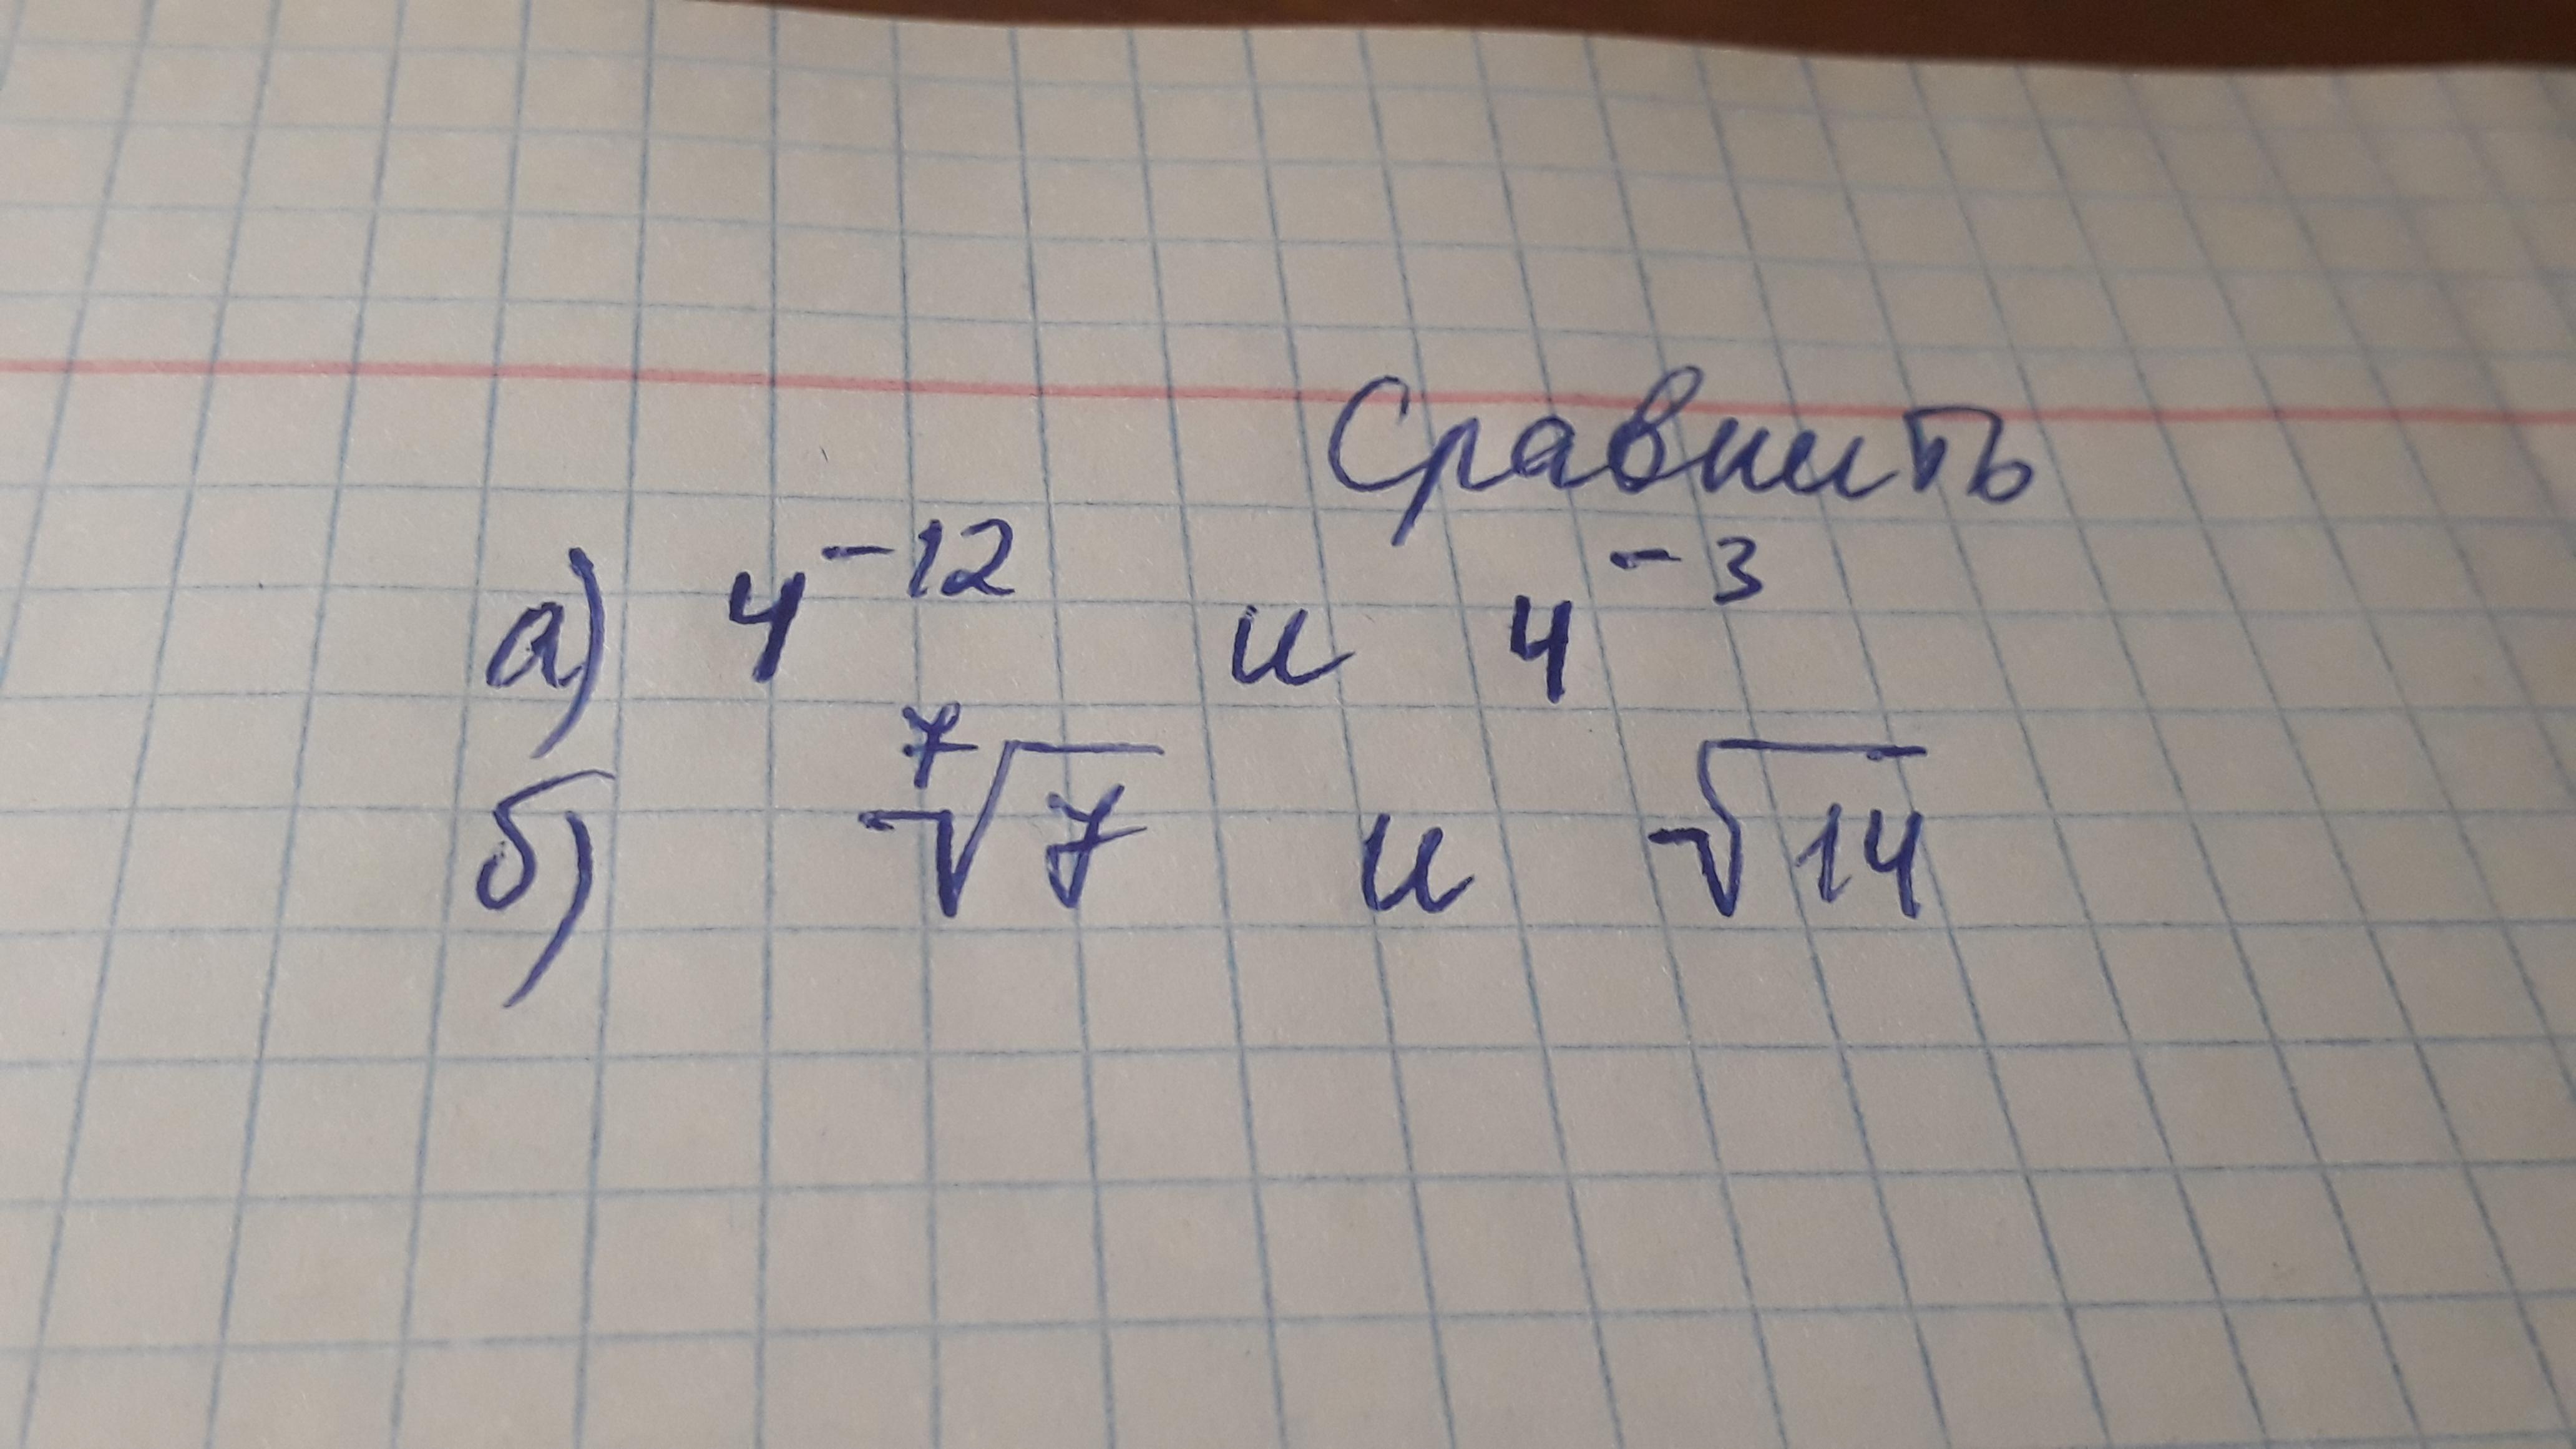 Сравнить
а) 4⁻¹² и 4⁻³
б) ⁷√7 и √14